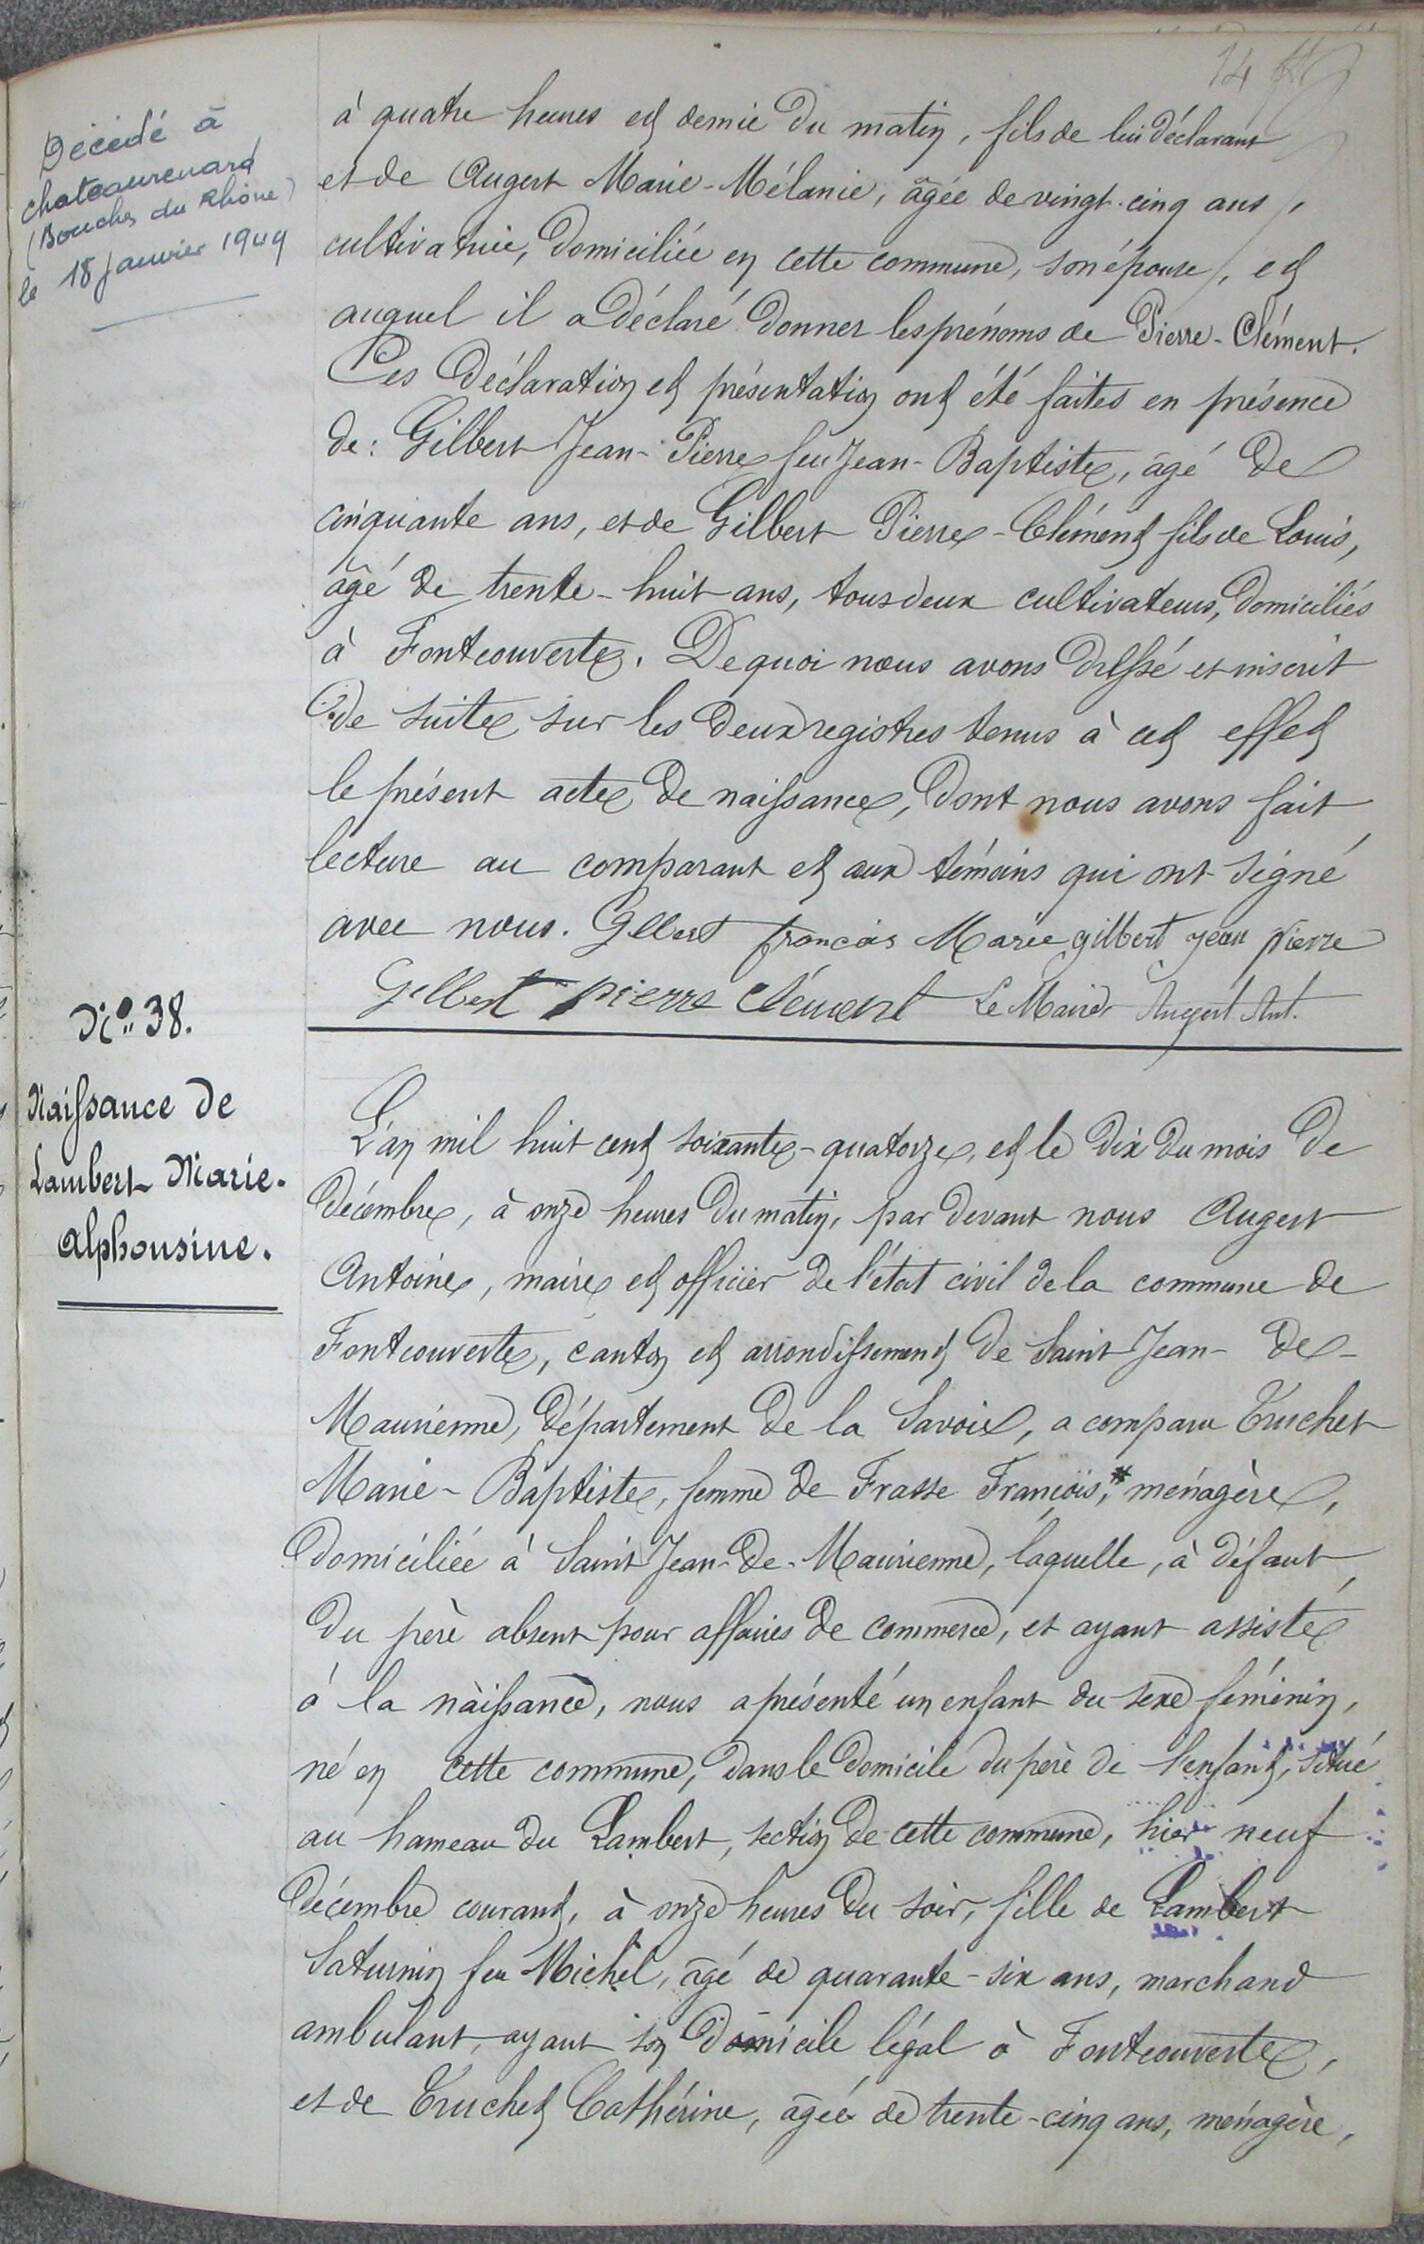 14
Décédé à
chateaurenard
(Bouches du Rhône)
le 18 janvier 1949
à quatre heures et demie du matin, fils de lui déclarant
et de Augert Marie-Mélanie, âgée de vingt-cinq ans,
cultivatrice, domiciliée en cette commune, son épouse, et
auquel il a déclaré donner les prénoms de Pierre-Clément.
Ces déclaration et présentation ont été faites en présence
de: Gilbert Jean-Pierre feu Jean-Baptiste, âgé de
cinquante ans, et de Gilbert Pierre-Clément fils de Louis,
âgé de trente-huit ans, tous deux cultivateurs, domiciliés
à Fontcouverte. De quoi nous avons dressé et inscrit
de suite sur les deux registres tenus à cet effet
le présent acte de naissance, dont nous avons fait
lecture au comparant et aux témoins qui ont signé
avec nous. Gilbert françois Marie gilbert jean pierre
Gilbert pierre clément Le Maire Augert Ant.
N° 38.
Naissance de
Lambert Marie-
Alphonsine.
L'an mil huit cent soixante-quatorze, et le dix du mois de
décembre, à onze heures du matin, par devant nous Augert
Antoine, maire et officier de l'état civil de la commune de
Fontcouverte, canton et arrondissement de Saint Jean-de-
Maurienne, département de la Savoie, a comparu Truchet
Marie-Baptiste, femme de Frasse François,* ménagère,
domiciliée à Saint Jean-de-Maurienne, laquelle, à défaut
du père absent pour affaires de commerce, et ayant assisté
à la naissance, nous a présenté un enfant du sexe féminin,
né en cette commune, dans le domicile du père de l'enfant, situé
au hameau du Lambert, section de cette commune, hier neuf
décembre courant, à onze heures du soir, fille de Lambert
Saturnin feu Michel, âgé de quarante-six ans, marchand
ambulant, ayant son domicile légal à Fontcouverte,
et de Truchet Cathérine, âgée de trente-cinq ans, ménagère,